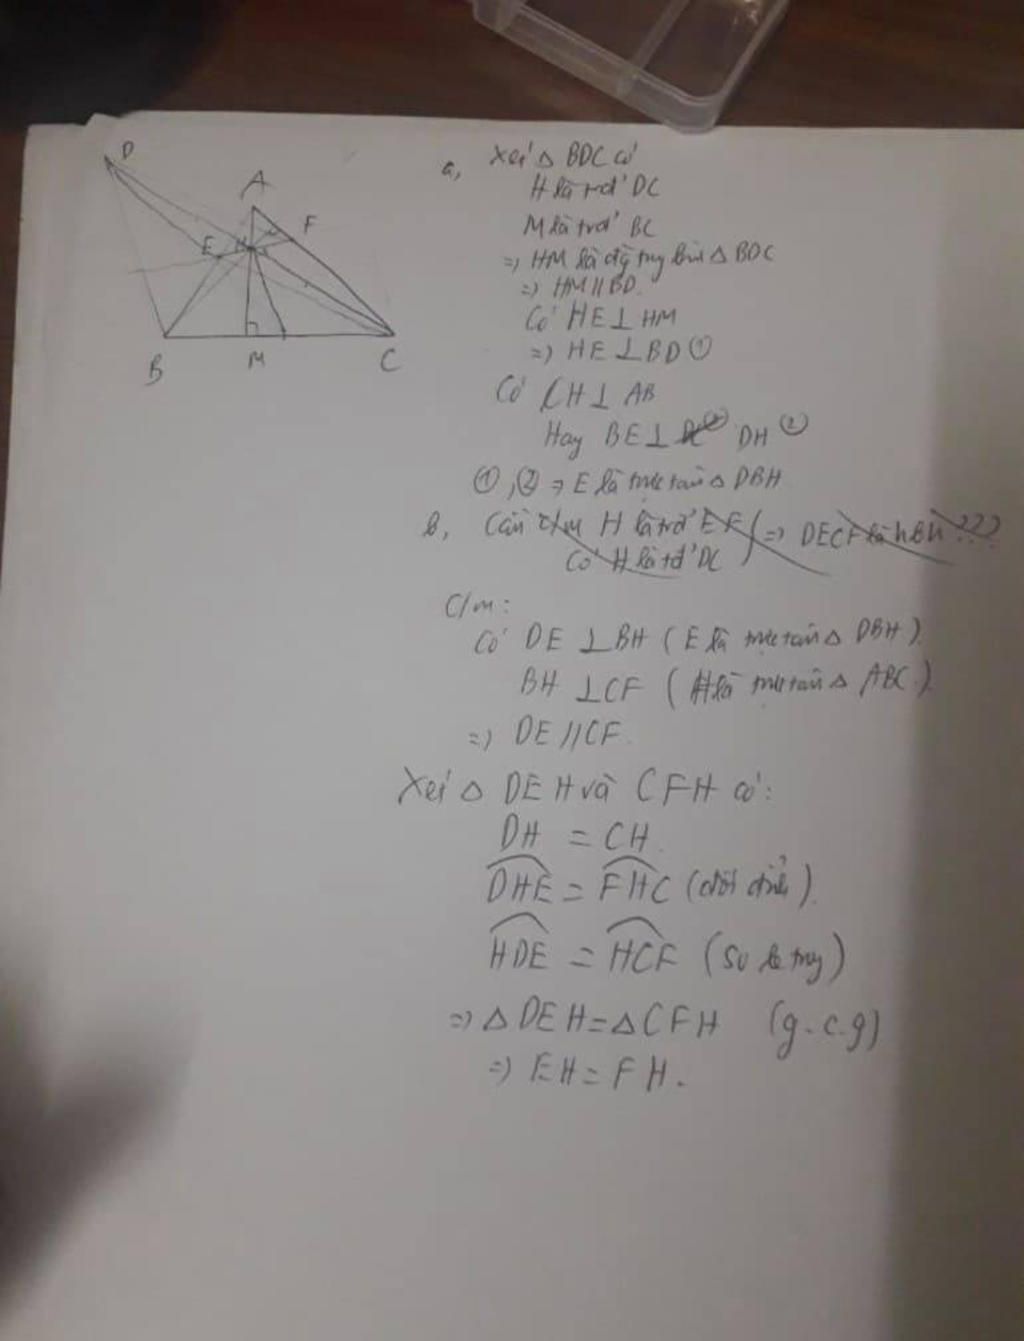 D
A
F
E
H
B
M
C
a, Xét △ BDC có
H là trđ' DC
M là trđ' BC
=> HM là đg trg bình △ BDC
=> HM // BD.
Có HE ⊥ HM
=> HE ⊥ BD ①
Có CH ⊥ AB
Hay BE ⊥ DH ②
①, ② => E là trực tâm △ DBH
b, Cần c/m H là trđ' EF
Có H là tđ' DC } => DECF là hbh ???
C/m:
Có DE ⊥ BH ( E là trực tâm △ DBH ).
BH ⊥ CF ( H là trực tâm △ ABC.)
=> DE // CF.
Xét △ DEH và CFH có:
DH = CH.
DHE = FHC (đối đỉnh).
HDE = HCF (so le trg)
=> △ DEH = △ CFH (g.c.g)
=> EH = FH.